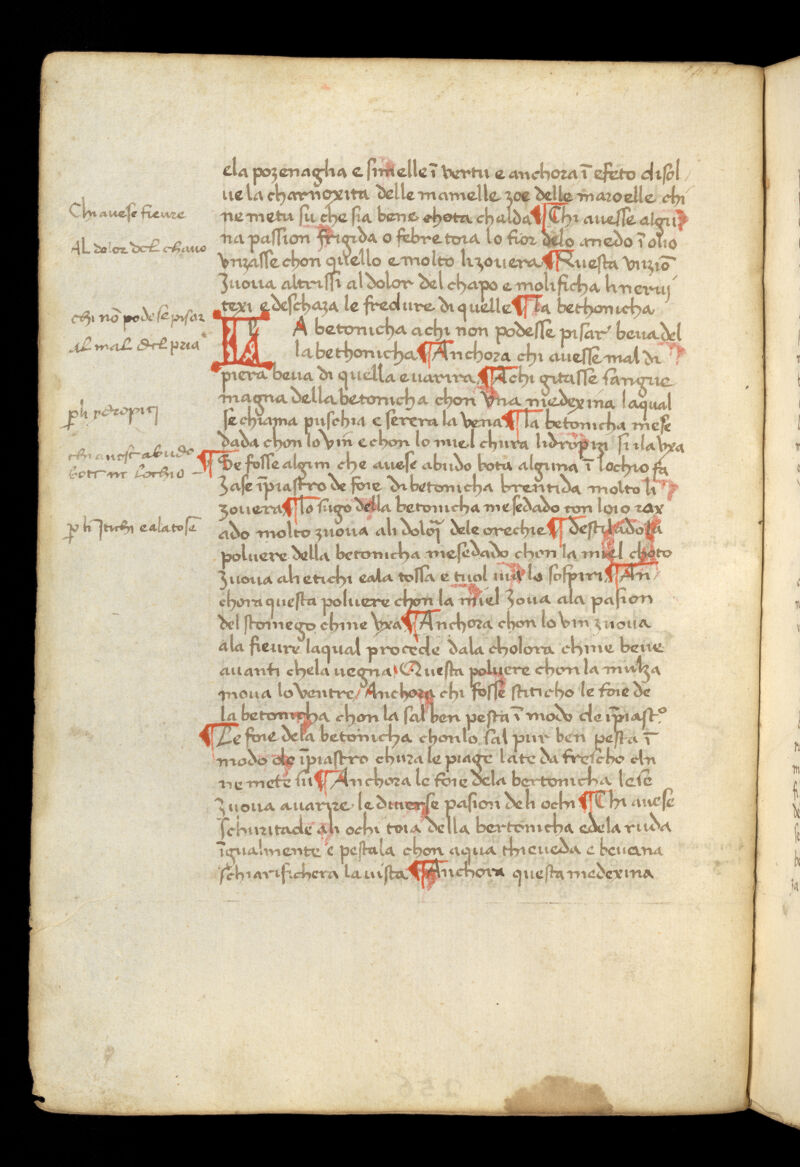 ela pozenaghia e simelle ī vertu e anchora ī efeto disol
ue la charnoxita delle mamelle zoe delle maroelle chi
ne metu su che sia bene chota chalda ¶ Chi auesse algu
na passion frigida o febre toia lo fior delo anedo ī olio
Vnzasse chon quello e molto li zouera ¶ Questa vnziō
Zuoua altrissi al dolor del chapo e molificha li neruij
texi e deschaza le fredure di quelle ¶ La bethonicha
LA betonicha a chi non podesse pisar beua del
la bethonicha ¶ Anchora chi auesse mal di
piera beua di quella e uarira ¶ A chi gitasse sangue
magna della betonicha chon Vna medexina laqual
se chiama puschia e serera la vena ¶ La betonicha mese
dada chon lo vin e chon lo miel chura lidropizi si ila vxa
¶ Se fosse algun che auese abudo bota alguna ī lochio fa
Zase īpiastro de foie di betonicha brentida molto li
zouera ¶ Lo sugo della betonicha mesedado con loio rox
ado molto zuoua ali dolorj dele orechie ¶
poluere della betonicha mesedado chon la miel choto
Zuoua ali etichi e ala tossa e tuol uia lo sospiri ¶ An
chora questa poluere chon la miel Zoua ala pasion
del stomego chi ne vxa ¶ Anchora chon lo vin zuoua
ala fieure laqual procede dala cholora chi ne beue
auanti che la uegna ¶ Questa poluere chon la mulza
moua lo ventre / Anchora chi fosse stiticho le foie de
la betonicha chon la sal ben pesta ī modo de īpiastro
¶ Le foie dela betonicha chon lo sal pur ben pesta ī
modo de īpiastro chura le piage late da frescho chi
ne mete su ¶ Anchora le foie dela bertonicha lese
Zuoua a uarire le diuerse pasion deli ochi ¶ Chi auese
schuritade ali ochi toia della bertonicha e dela ruda
īgualmente e pestala chon aqua tiueda e beuana
schiarifichera la uista ¶ Anchora questa medexina
Chi auese fieure
Al dolor del chauo
chi nō podese pisar
Al mal del pria
p li ydropizij
chi auese abudo
bota in lochio
p li Itichi e ala tose